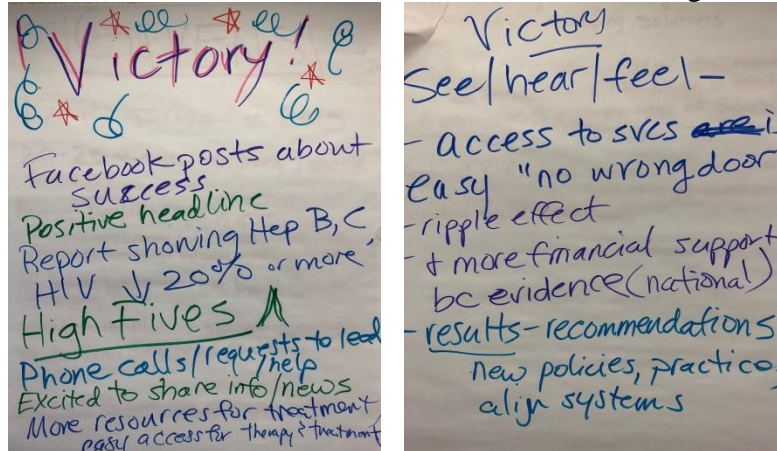 Victory!
Facebook posts about
success
Positive headline
Report showing Hep B, C,
HIV ↓ 20% or more
High Fives
Phone calls/requests to lead
/help
Excited to share info/news
More resources for treatment,
easy access for therapy & treatment
Victory
See/hear/feel -
- access to svcs i
easy "no wrong door
- ripple effect
- + more financial support
bc evidence (national)
- results - recommendations
new policies, practice,
align systems